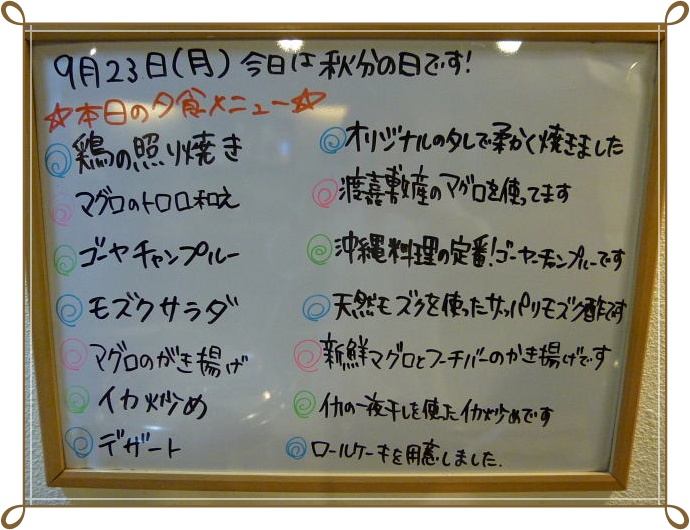 9月23日(月) 今日は秋分の日です!
☆本日の夕食メニュー☆
鶏の照り焼き オリジナルのタレで柔かく焼きました
マグロのトロロ和え 渡嘉敷産のマグロを使ってます
ゴーヤチャンプルー 沖縄料理の定番!ゴーヤーチンプルーです
モズクサラダ 天然モズクを使ったサッパリモズク酢です
マグロのがき揚げ 新鮮マグロとフーチバーのかき揚げです
イカ炒め イカの一夜干しを使ったイカ炒めです
デザート ロールケーキを用意しました.